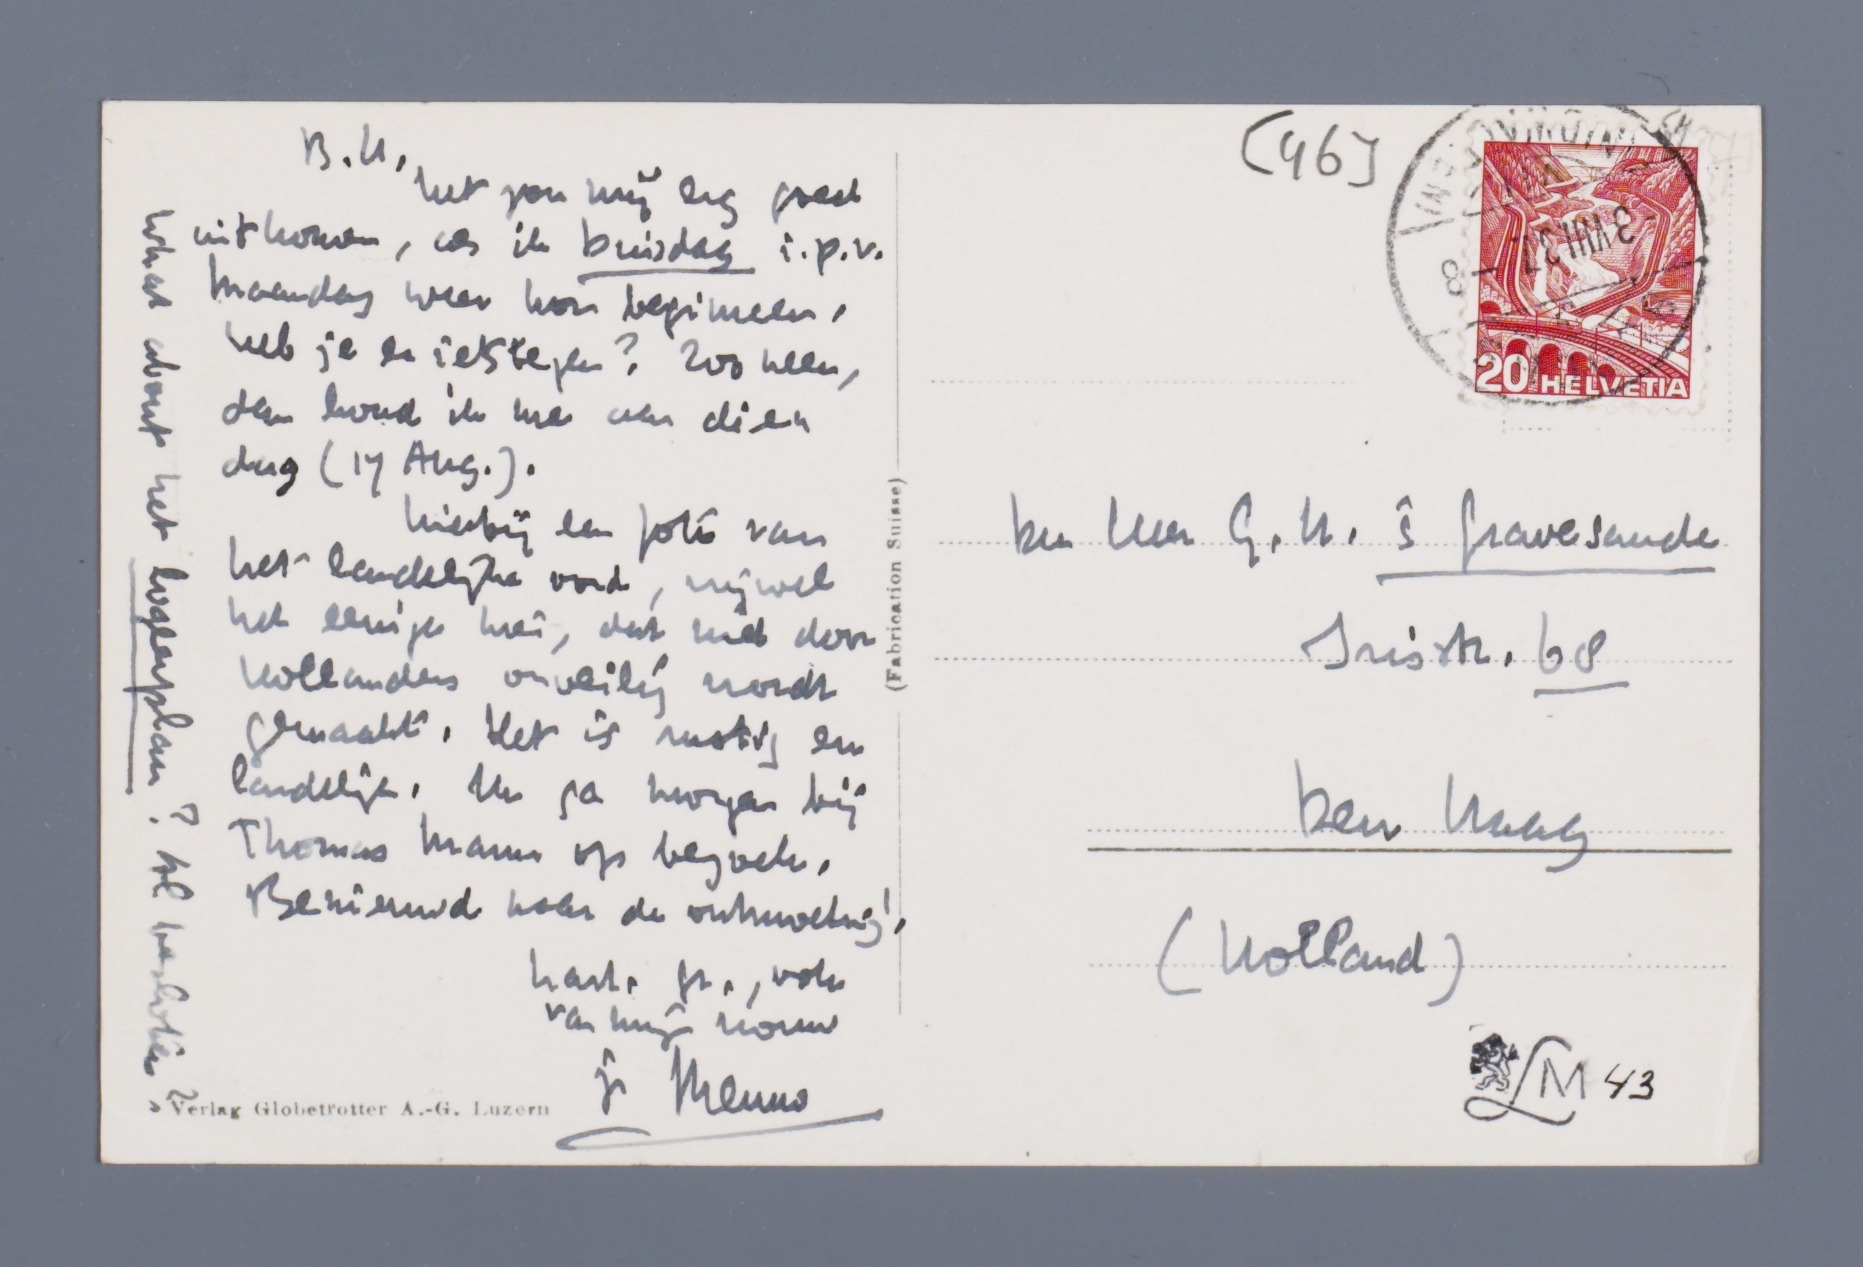 B.H.,
het zou mij erg goed
uitkomen, als ik Dinsdag i.p.v.
Maandag weer kon beginnen,
heb je er iets tegen? Zoo neen,
dan houd ik me aan dien
dag (17 Aug.).
Hierbij een foto van
het landelijke oord, vrijwel
het eenige hier, dat niet door
Hollanders onveilig wordt
gemaakt. Het is rustig en
landelijk. Ik ga morgen bij
Thomas Mann op bezoek.
Benieuwd naar de ontmoeting!
hart. gr., ook
van mijn vrouw
je Menno
What about het logeerplan?
Verlag Globetrotter A.-G. Luzern
(Fabrication Suisse)
(46)
3 VIII 37
20 HELVETIA
Den Heer G.H. 's Gravesande
Irisstr. 68
Den Haag
(Holland)
LM 43